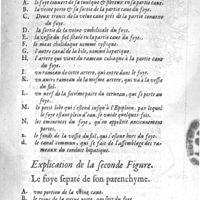 A. le foye couuert de sa tunique & flottant en sa partie caue.
B. la veine porte & sa sortie de la partie caue du foye.
C. Deux troncs de la veine caue prés de la partie conuexe du foye.
D. la sortie de la veine umbilicale du foye.
E. la vessie du fiel située en la partie caue du foye.
F. le meat cholidoque nommé cystique.
G. l'autre canal de la bile, nommé hepatique.
H. l'artere qui vient du rameau cœliaque à la partie caue du foye.
I. vn rameau de cette artere, qui entre dans le foye.
K. vn autre rameau de la mesme artere, qui va à la vessie du fiel.
L. vn nerf de la sixiesme paire du cerueau, qui se porte au foye.
M. le petit lobe qui s'estend iusqu'à l'Epiploon, par lequel le foye estant plein d'eau, est souuent soulagé.
N. les eminences du foye, qu'on appelle anciennement portes.
a. le fonds de la vessie du fiel, qui s'estend hors du foye.
d. le canal commun, qui se fait de l'assemblage des rameaux du conduit hepatique.
Explication de la seconde Figure.
Le foye separé de son parenchyme.
A. vne portion de la veine caue.
B. le tronc de la veine porte, qui sort du foye.